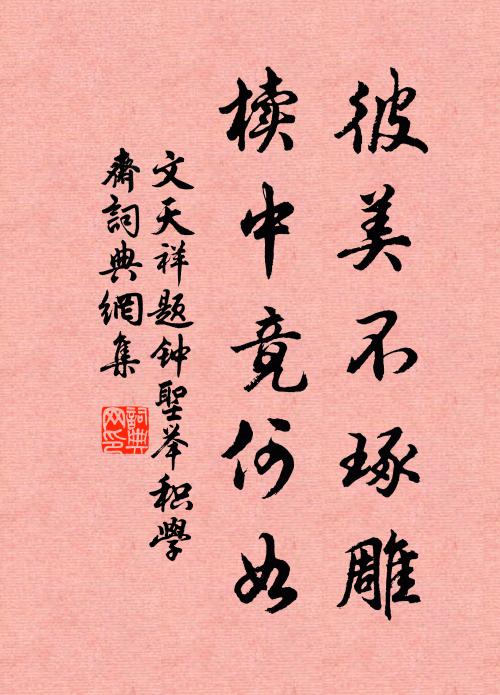 彼美不琢雕
椟中竟何如
文天祥题钟聖举积学
齋詞典網集
詞典网印